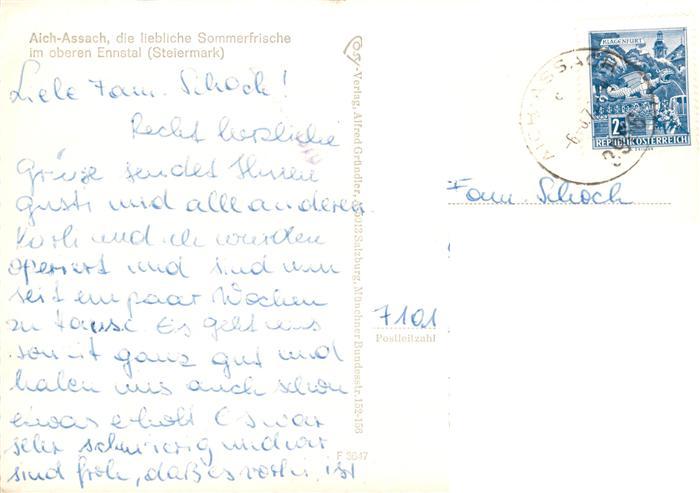 Aich-Assach, die liebliche Sommerfrische
im oberen Ennstal (Steiermark)
Liebe Fam. Schoch!
Recht herzliche
Grüße sendet Ihnen
Gusti und alle anderen
und ich wurden
operiert und sind nun
seit ein paar Wochen
zu Hause. Es geht uns
somit ganz gut und
haben uns auch schon
etwas erholt. Es war
sehr schwierig und wir
sind froh, daß es vorbei ist
Verlag, Alfred Gründler, Salzburg, Münchner Bundesstr. 152-156
F 3647
KLAGENFURT
REPUBLIK ÖSTERREICH
AICH-ASSACH
Fam. Schoch
7101
Postleitzahl